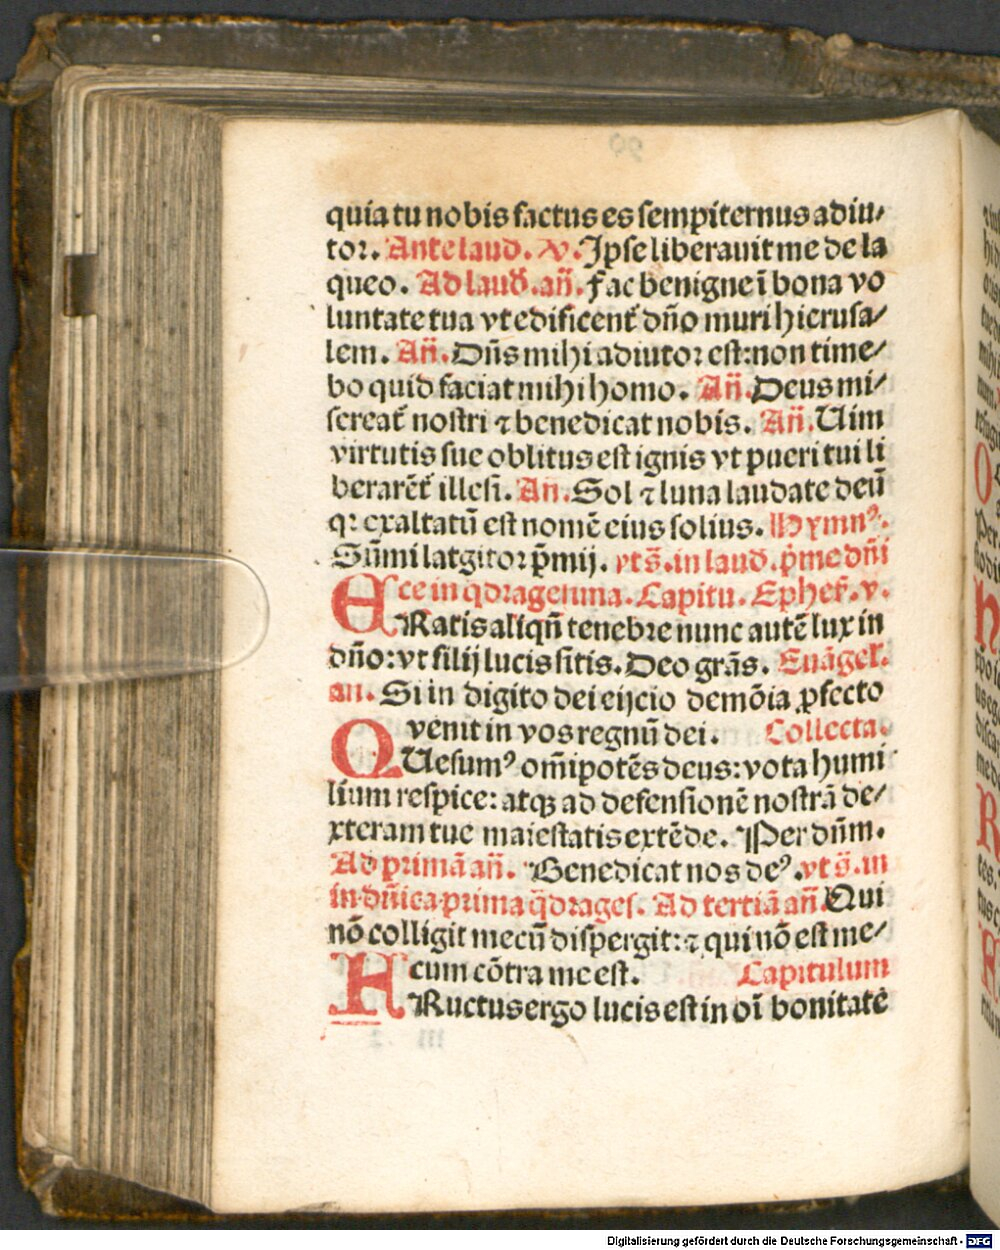 quia tu nobis factus es sempiternus adiu/
tor. Ante laud. ℣. Ipse liberauit me de la
queo. Ad laud. an̄. fac benigne ī bona vo
luntate tua vt edificent᷑ dn̄o muri hierusa/
lem. An̄. Dn̄s mihi adiutor est: non time/
bo quid faciat mihi homo. An̄. Deus mi/
sereat᷑ nostri ⁊ benedicat nobis. An̄. Uim
virtutis sue oblitus est ignis vt pueri tui li
berarēt᷑ illesi. An. Sol ⁊ luna laudate deū
qꝛ exaltatū est nomē eius solius. Hymnꝰ.
Sūmi latgitor p̄mij. vt s̄. in laud. p̄me dn̄i
ce in qdragenima. Capitu. Ephes. v.
ERatis aliqn̄ tenebre nunc autē lux in
dn̄o: vt filij lucis sitis. Deo grās. Euāgel.
an. Si in digito dei eijcio demōia ꝓfecto
venit in vos regnū dei. Collecta.
QUesumꝰ om̄ipotēs deus: vota humi
lium respice: atqꝫ ad defensionē nostrā de/
xteram tue maiestatis extēde. Per dn̄m.
Ad primā an̄. Benedicat nos deꝰ. vt s̄. in
in dn̄ica prima q̄drages. Ad tertiā an̄. Qui
nō colligit mecū dispergit: ⁊ qui nō est me/
cum cōtra me est. Capitulum
FRuctus ergo lucis est in oī bonitate
99
Digitalisierung gefördert durch die Deutsche Forschungsgemeinschaft - DFG